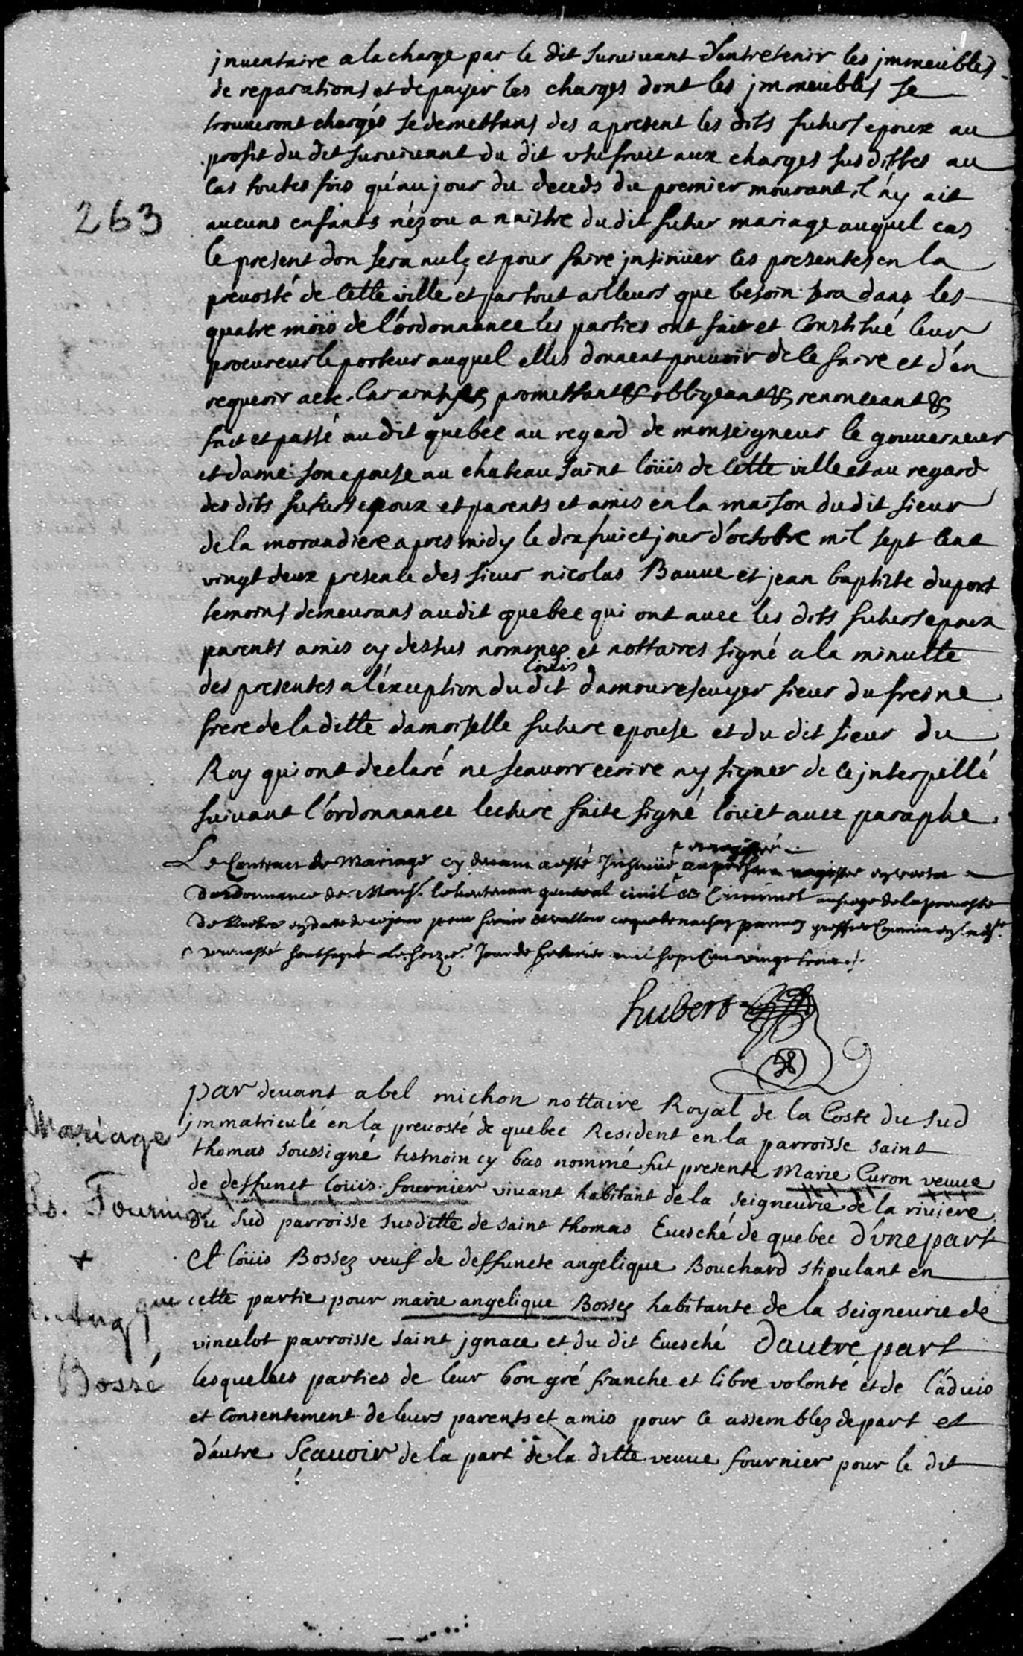 inventaire a la charge par le dit survivant d'entretenir les immeubles
de reparations et de payer les charges dont les immeubles se
trouveront chargés se demettans des apresent les dits futurs epoux au
profit du dit survivant du dit usufruit aux charges susdittes au
cas toutes fois qu'au jour du deceds du premier mourant il n'y ait
263
aucuns enfants néz ou a naistre du dit futur mariage auquel cas
le present don sera nul, et pour faire insinuer les presentes en la
prevosté de cette ville et partout ailleurs que besoin sera dans les
quatre mois de l'ordonnance les parties ont fait et constitué leur
procureur le porteur auquel elles donnent pouvoir de le faire et d'en
requerir acte. Car ainsy &c promettant &c obligeant &c renonceant &c
fait et passé au dit quebec au regard de monseigneur le gouverneur
et dame son epouse au chateau saint loüis de cette ville et au regard
des dits futurs epoux et parents et amis en la maison du dit sieur
de la morandiere apres midy le dixhuict jour d'octobre mil sept cent
vingt deux presence des sieur nicolas Bauve et jean baptiste dupont
temoins demeurans audit quebec qui ont avec les dits futurs epoux
parents amis cy dessus nommez et nottaires signé a la minutte
des presentes a l'éxception du dit louis damours escuyer sieur du fresne
frere de la ditte damoiselle future epouse et du dit sieur du
Roy qui ont declaré ne sçavoir ecrire ny signer de ce interpellé
suivant l'ordonnance lecture faite signé loüet avec paraphe.
Le Contract de Mariage cy devant a esté Insinüé au registre
d'ordonnance de Mons.r le lieutenant general civil et Criminel au siege de la prevosté
de quebec en date de ce jour pour servir et valloir ce que de raison par moy greffier Commis en
soussigné Le seize.e Jour de fevrier mil sept Cent vingt trois ./.
hubert
par devant abel michon nottaire Royal de la Coste du Sud
Mariage
immatriculé en la prevosté de quebec Resident en la parroisse saint
thomas soussigné tesmoin cy bas nommé fut presente Marie Caron veuve
de deffunct Louis fournier vivant habitant de la seigneurie de la riviere
Ls. Fournier
du Sud parroisse susditte de saint thomas Evesché de quebec d'une part
+
Et loüis Bossez veuf de deffuncte angelique Bouchard stipulant en
cette partie pour marie angelique Bossez habitante de la seigneurie de
vincelot parroisse saint jgnace et du dit Evesché d'autre part
Bossé
lesquelles parties de leur bon gré franche et libre volonté et de l'advis
et Consentement de leurs parents et amis pour ce assemblez de part et
d'autre Sçavoir de la part de la ditte veuve fournier pour le dit